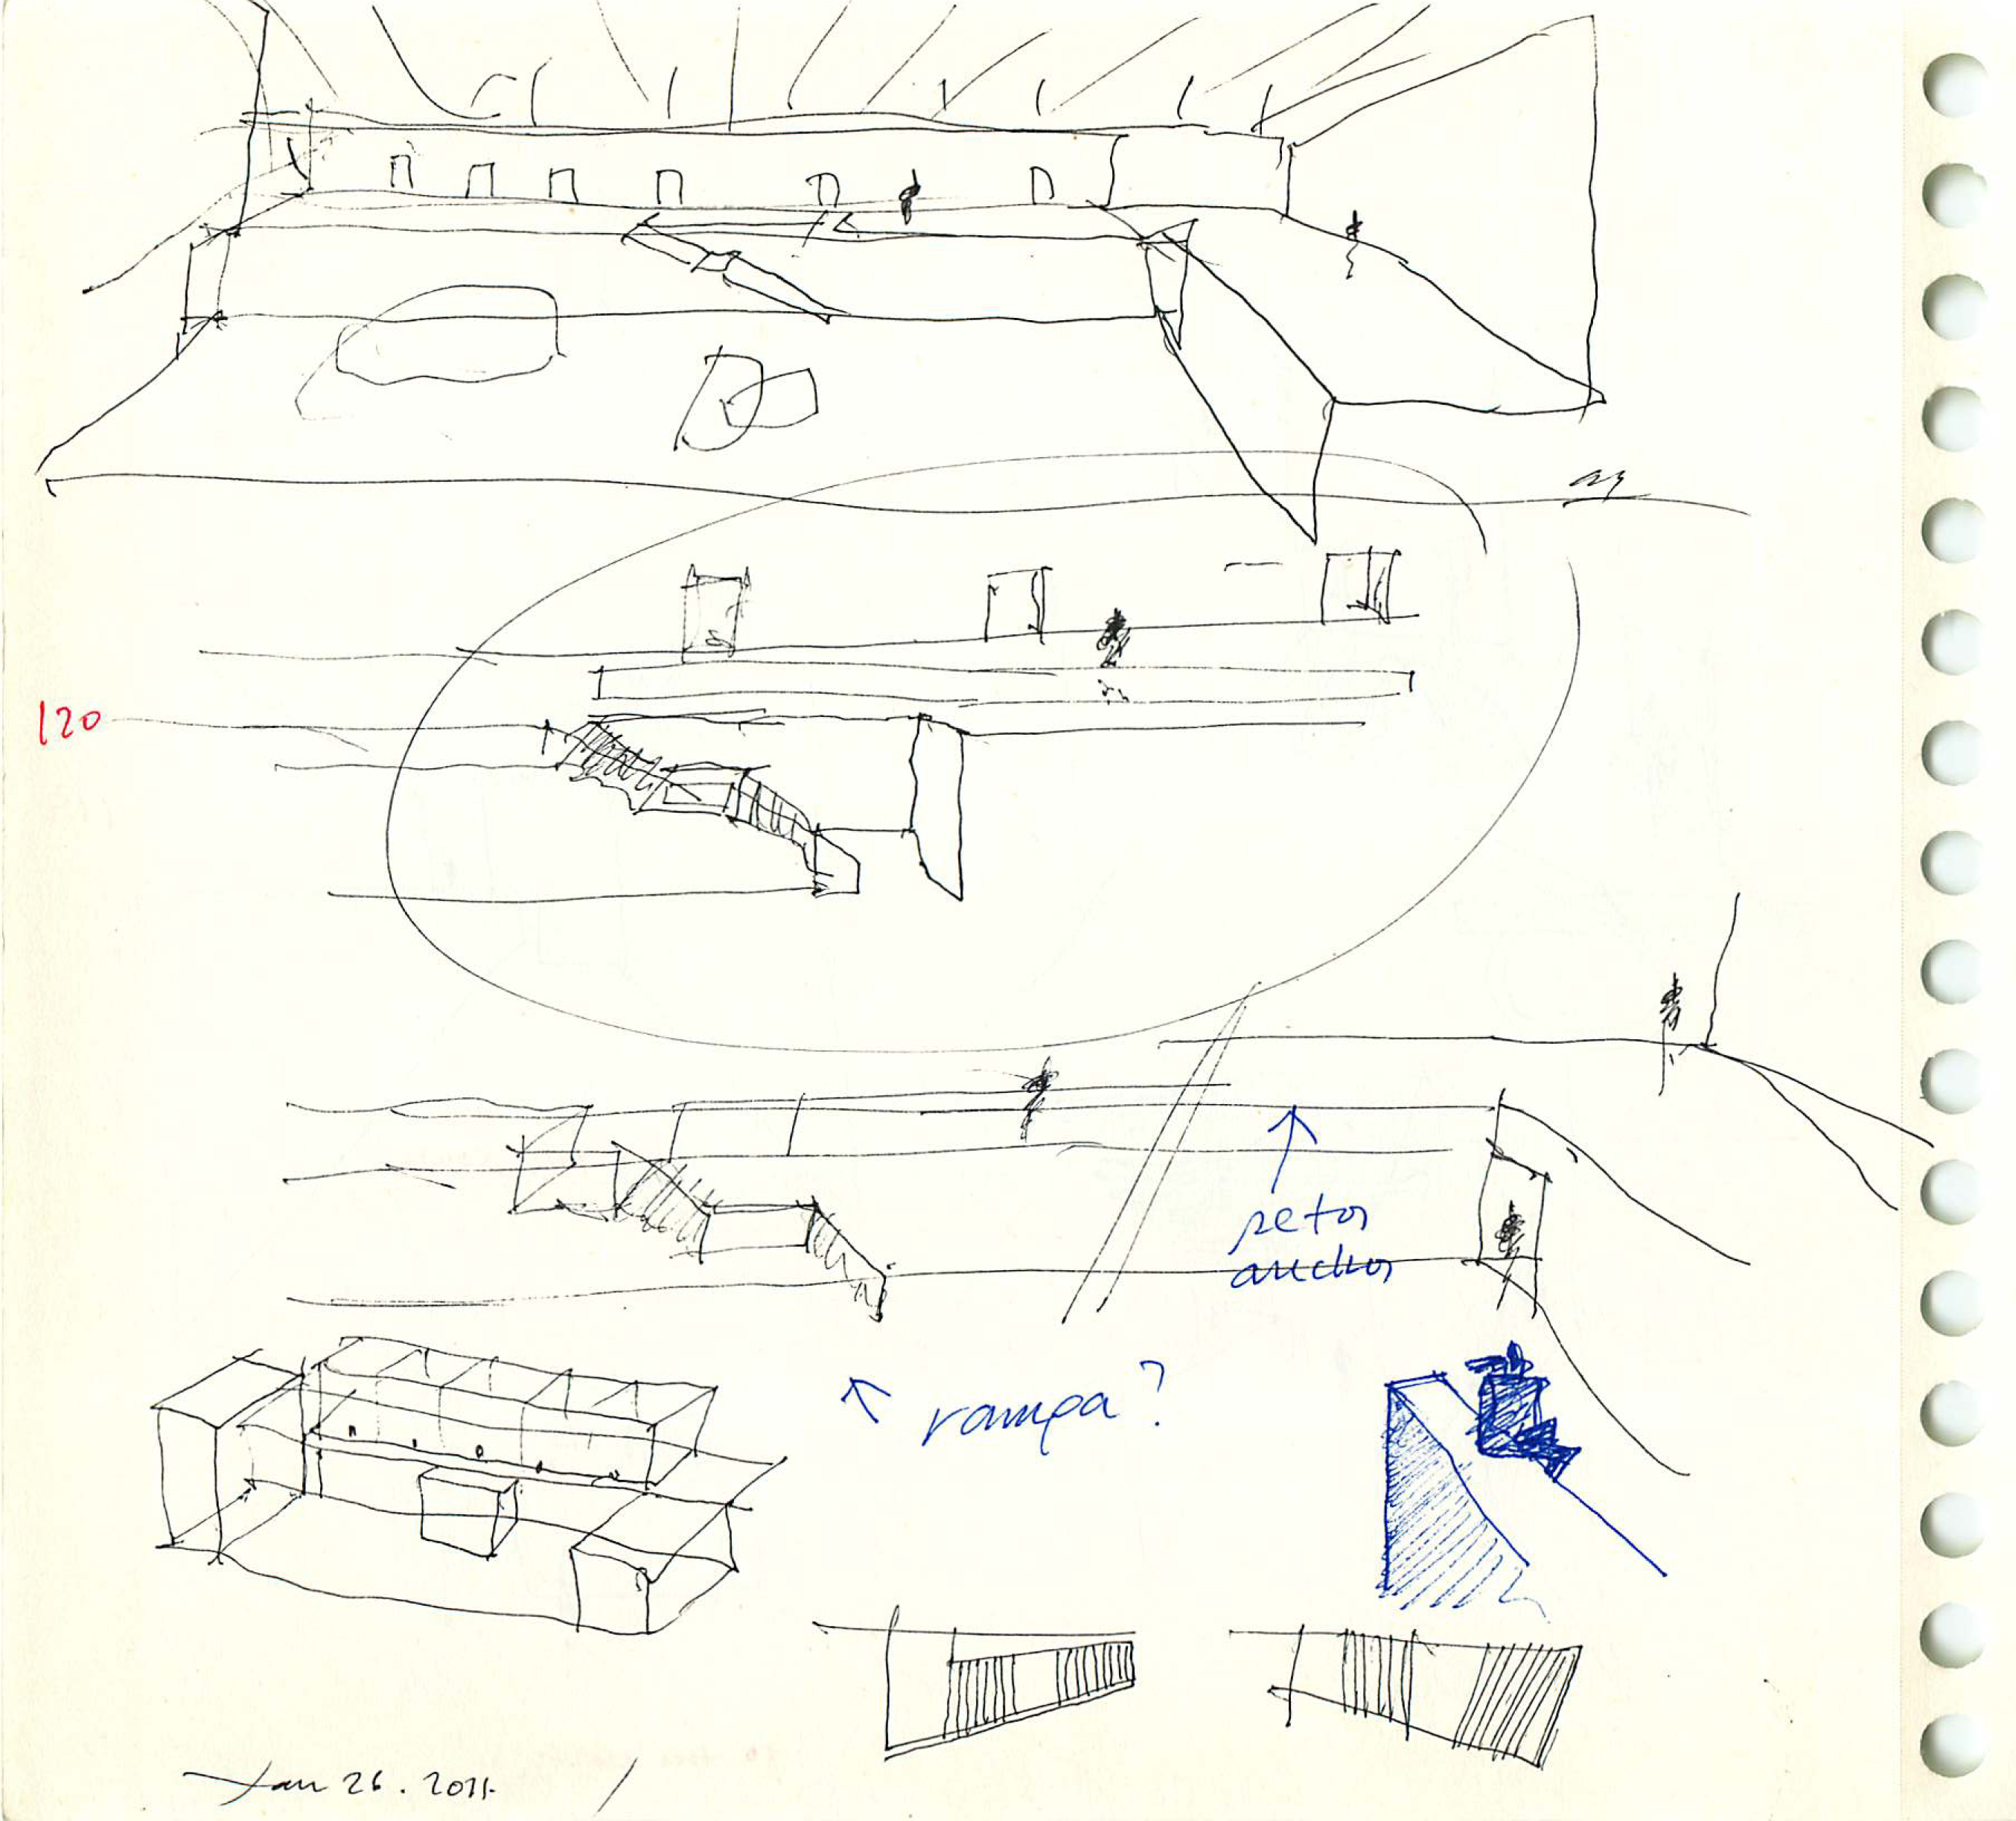 120
petos
anchos
rampa?
Jan 26. 2011.